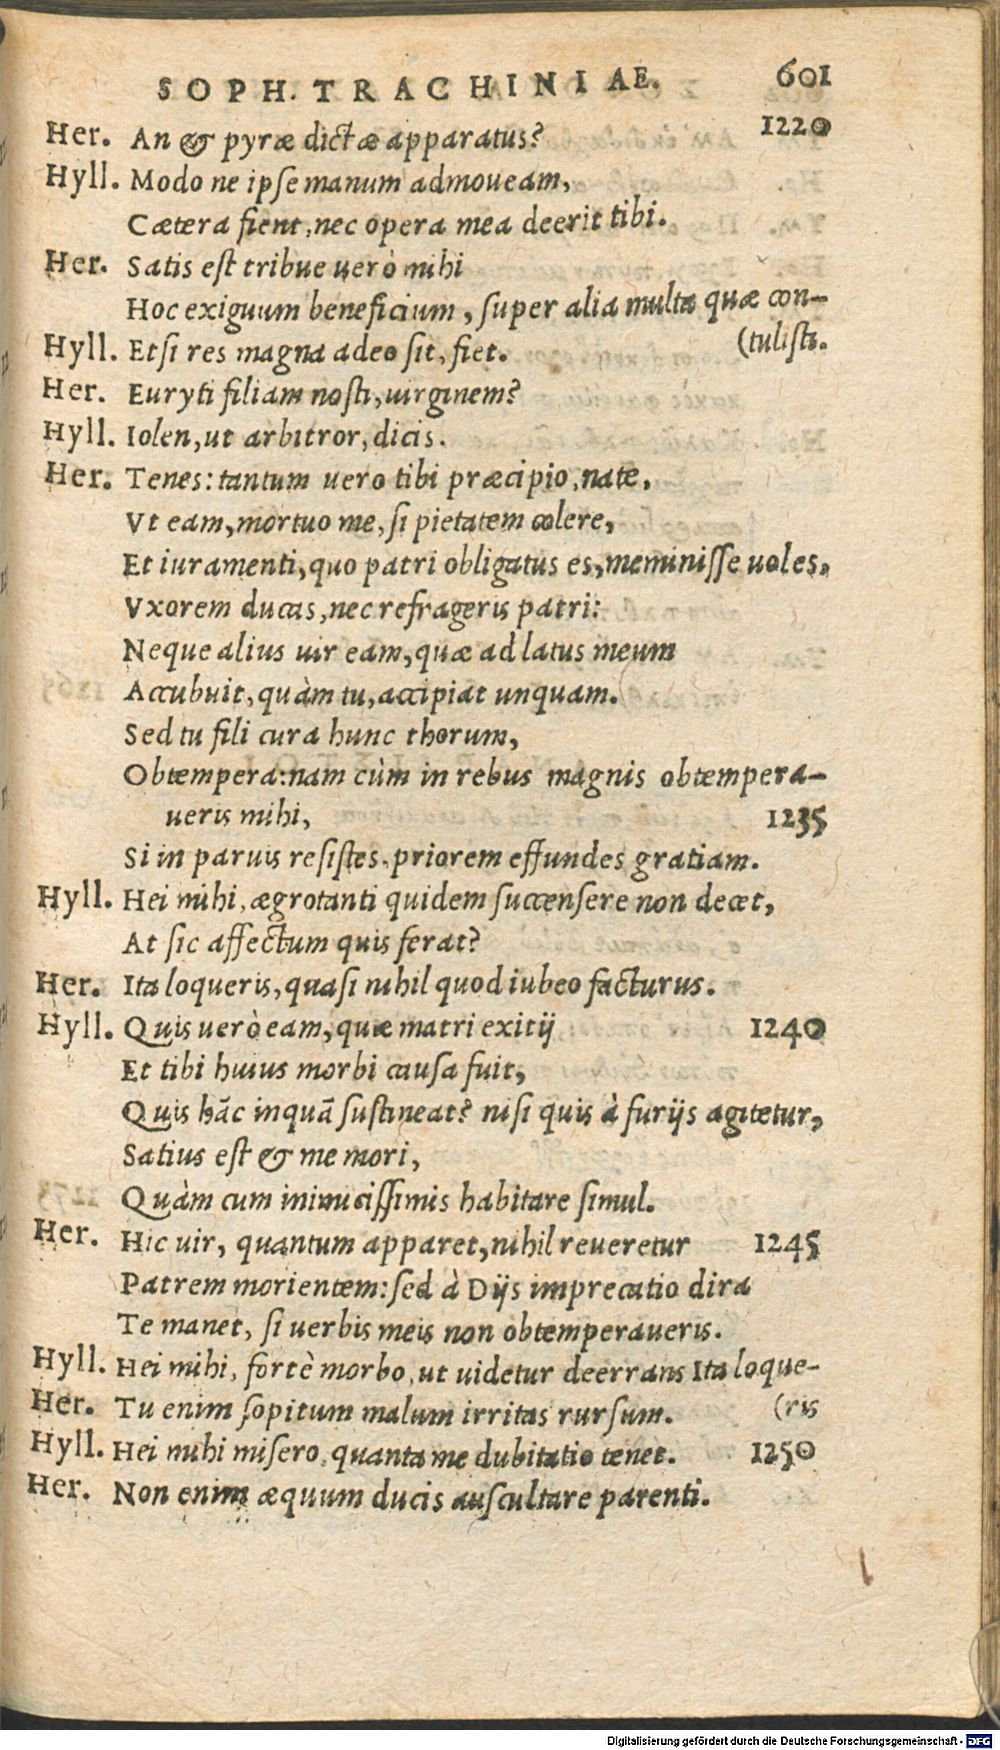 SOPH. TRACHINIAE. 601
Her. An & pyræ dictæ apparatus? 1220
Hyll. Modo ne ipse manum admoueam,
Cætera fient, nec opera mea deerit tibi.
Her. Satis est tribue uerò mihi
Hoc exiguum beneficium, super alia multa quæ con-
Hyll. Etsi res magna adeo sit, fiet. (tulisti.
Her. Euryti filiam nosti, uirginem?
Hyll. Iolen, ut arbitror, dicis.
Her. Tenes: tantum uero tibi præcipio, nate,
Vt eam, mortuo me, si pietatem colere,
Et iuramenti, quo patri obligatus es, meminisse uoles,
Vxorem ducas, nec refrageris patri:
Neque alius uir eam, quæ ad latus meum
Accubuit, quàm tu, accipiat unquam.
Sed tu fili cura hunc thorum,
Obtempera: nam cùm in rebus magnis obtempera-
ueris mihi, 1235
Si in paruis resistes, priorem effundes gratiam.
Hyll. Hei mihi, ægrotanti quidem succensere non decet,
At sic affectum quis ferat?
Her. Ita loqueris, quasi nihil quod iubeo facturus.
Hyll. Quis uerò eam, quæ matri exitij 1240
Et tibi huius morbi causa fuit,
Quis hāc inquā sustineat? nisi quis à furijs agitetur,
Satius est & me mori,
Quàm cum inimicissimis habitare simul.
Her. Hic uir, quantum apparet, nihil reueretur 1245
Patrem morientem: sed à Dijs imprecatio dira
Te manet, si uerbis meis non obtemperaueris.
Hyll. Hei mihi, fortè morbo, ut uidetur deerrans Ita loque-
Her. Tu enim sopitum malum irritas rursum. (ris
Hyll. Hei mihi misero, quanta me dubitatio tenet. 1250
Her. Non enim æquum ducis auscultare parenti.
Digitalisierung gefördert durch die Deutsche Forschungsgemeinschaft - DFG